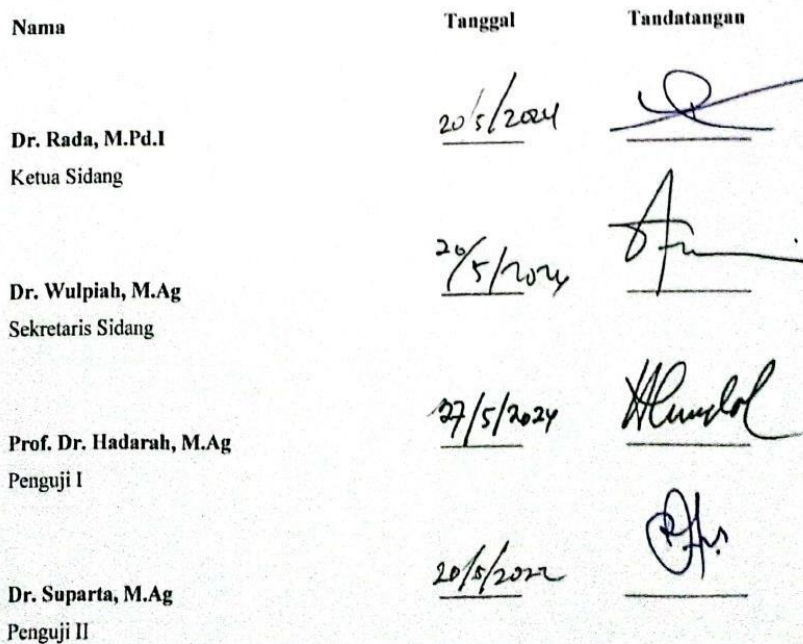 Nama Tanggal Tandatangan
20/5/2024
Dr. Rada, M.Pd.I
Ketua Sidang
20/5/2024
Dr. Wulpiah, M.Ag
Sekretaris Sidang
27/5/2024
Prof. Dr. Hadarah, M.Ag
Penguji I
20/5/202
Dr. Suparta, M.Ag
Penguji II